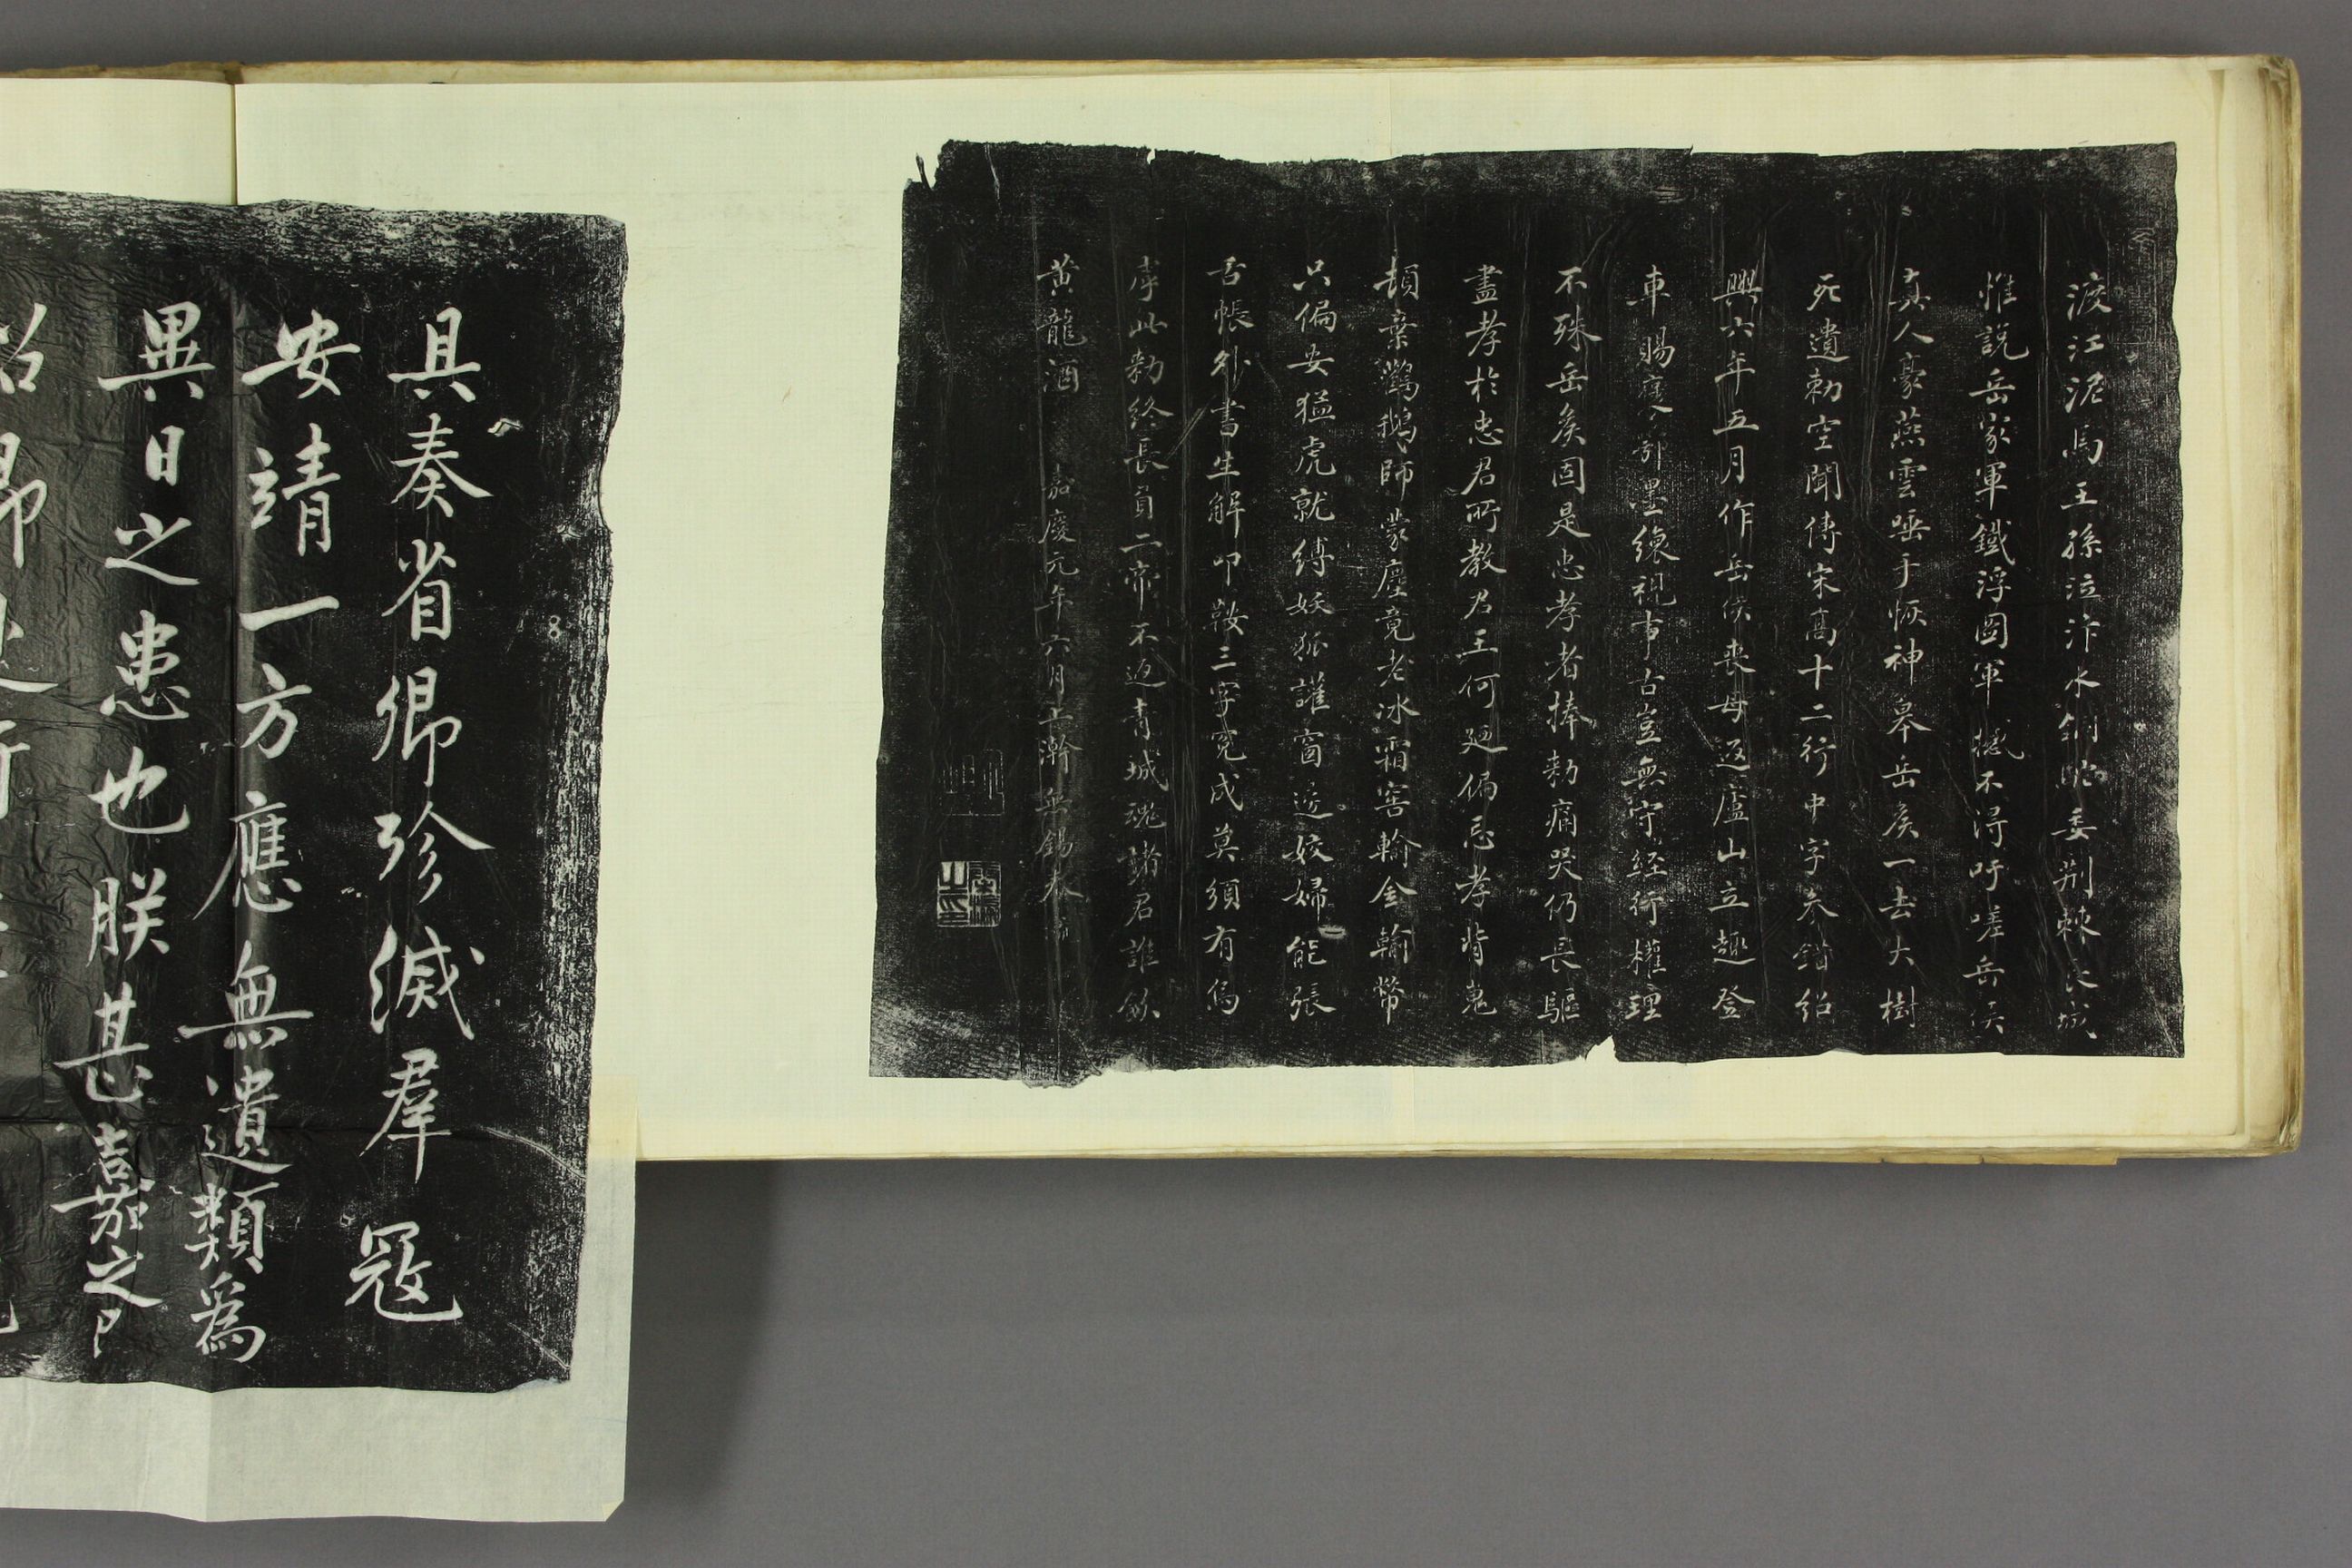 渡江泥馬王孫泣汴水銅駝委荆棘長城
惟說岳家軍鐵浮圖軍撼不得吁嗟岳侯
真人豪燕雲唾手恢神皋岳矦一去大樹
死遺勅空聞傳宋高十二行中字叅錯紹
興六年五月作岳侯喪母返廬山立趣登
車賜襄鄂墨縗視事古豈無守經行權理
不殊岳矦固是忠孝者捧勅痛哭仍長驅
盡孝於忠君所教君王何廼偏忌孝背嵬
頓棄鸛鵝師蒙塵竟老冰霜窖輸金輸幣
只偏安猛虎就縛妖狐讙窗邊姣婦能張
舌帳外書生解叩鞍三字寃成莫須有偽
虖此勅終長負二帝不返青城魂諸君誰飲
黄龍酒 嘉慶元年六月上澣無錫秦
具奏省卿珍滅羣冦
安靖一方應無遺類爲
異日之患也朕甚嘉之